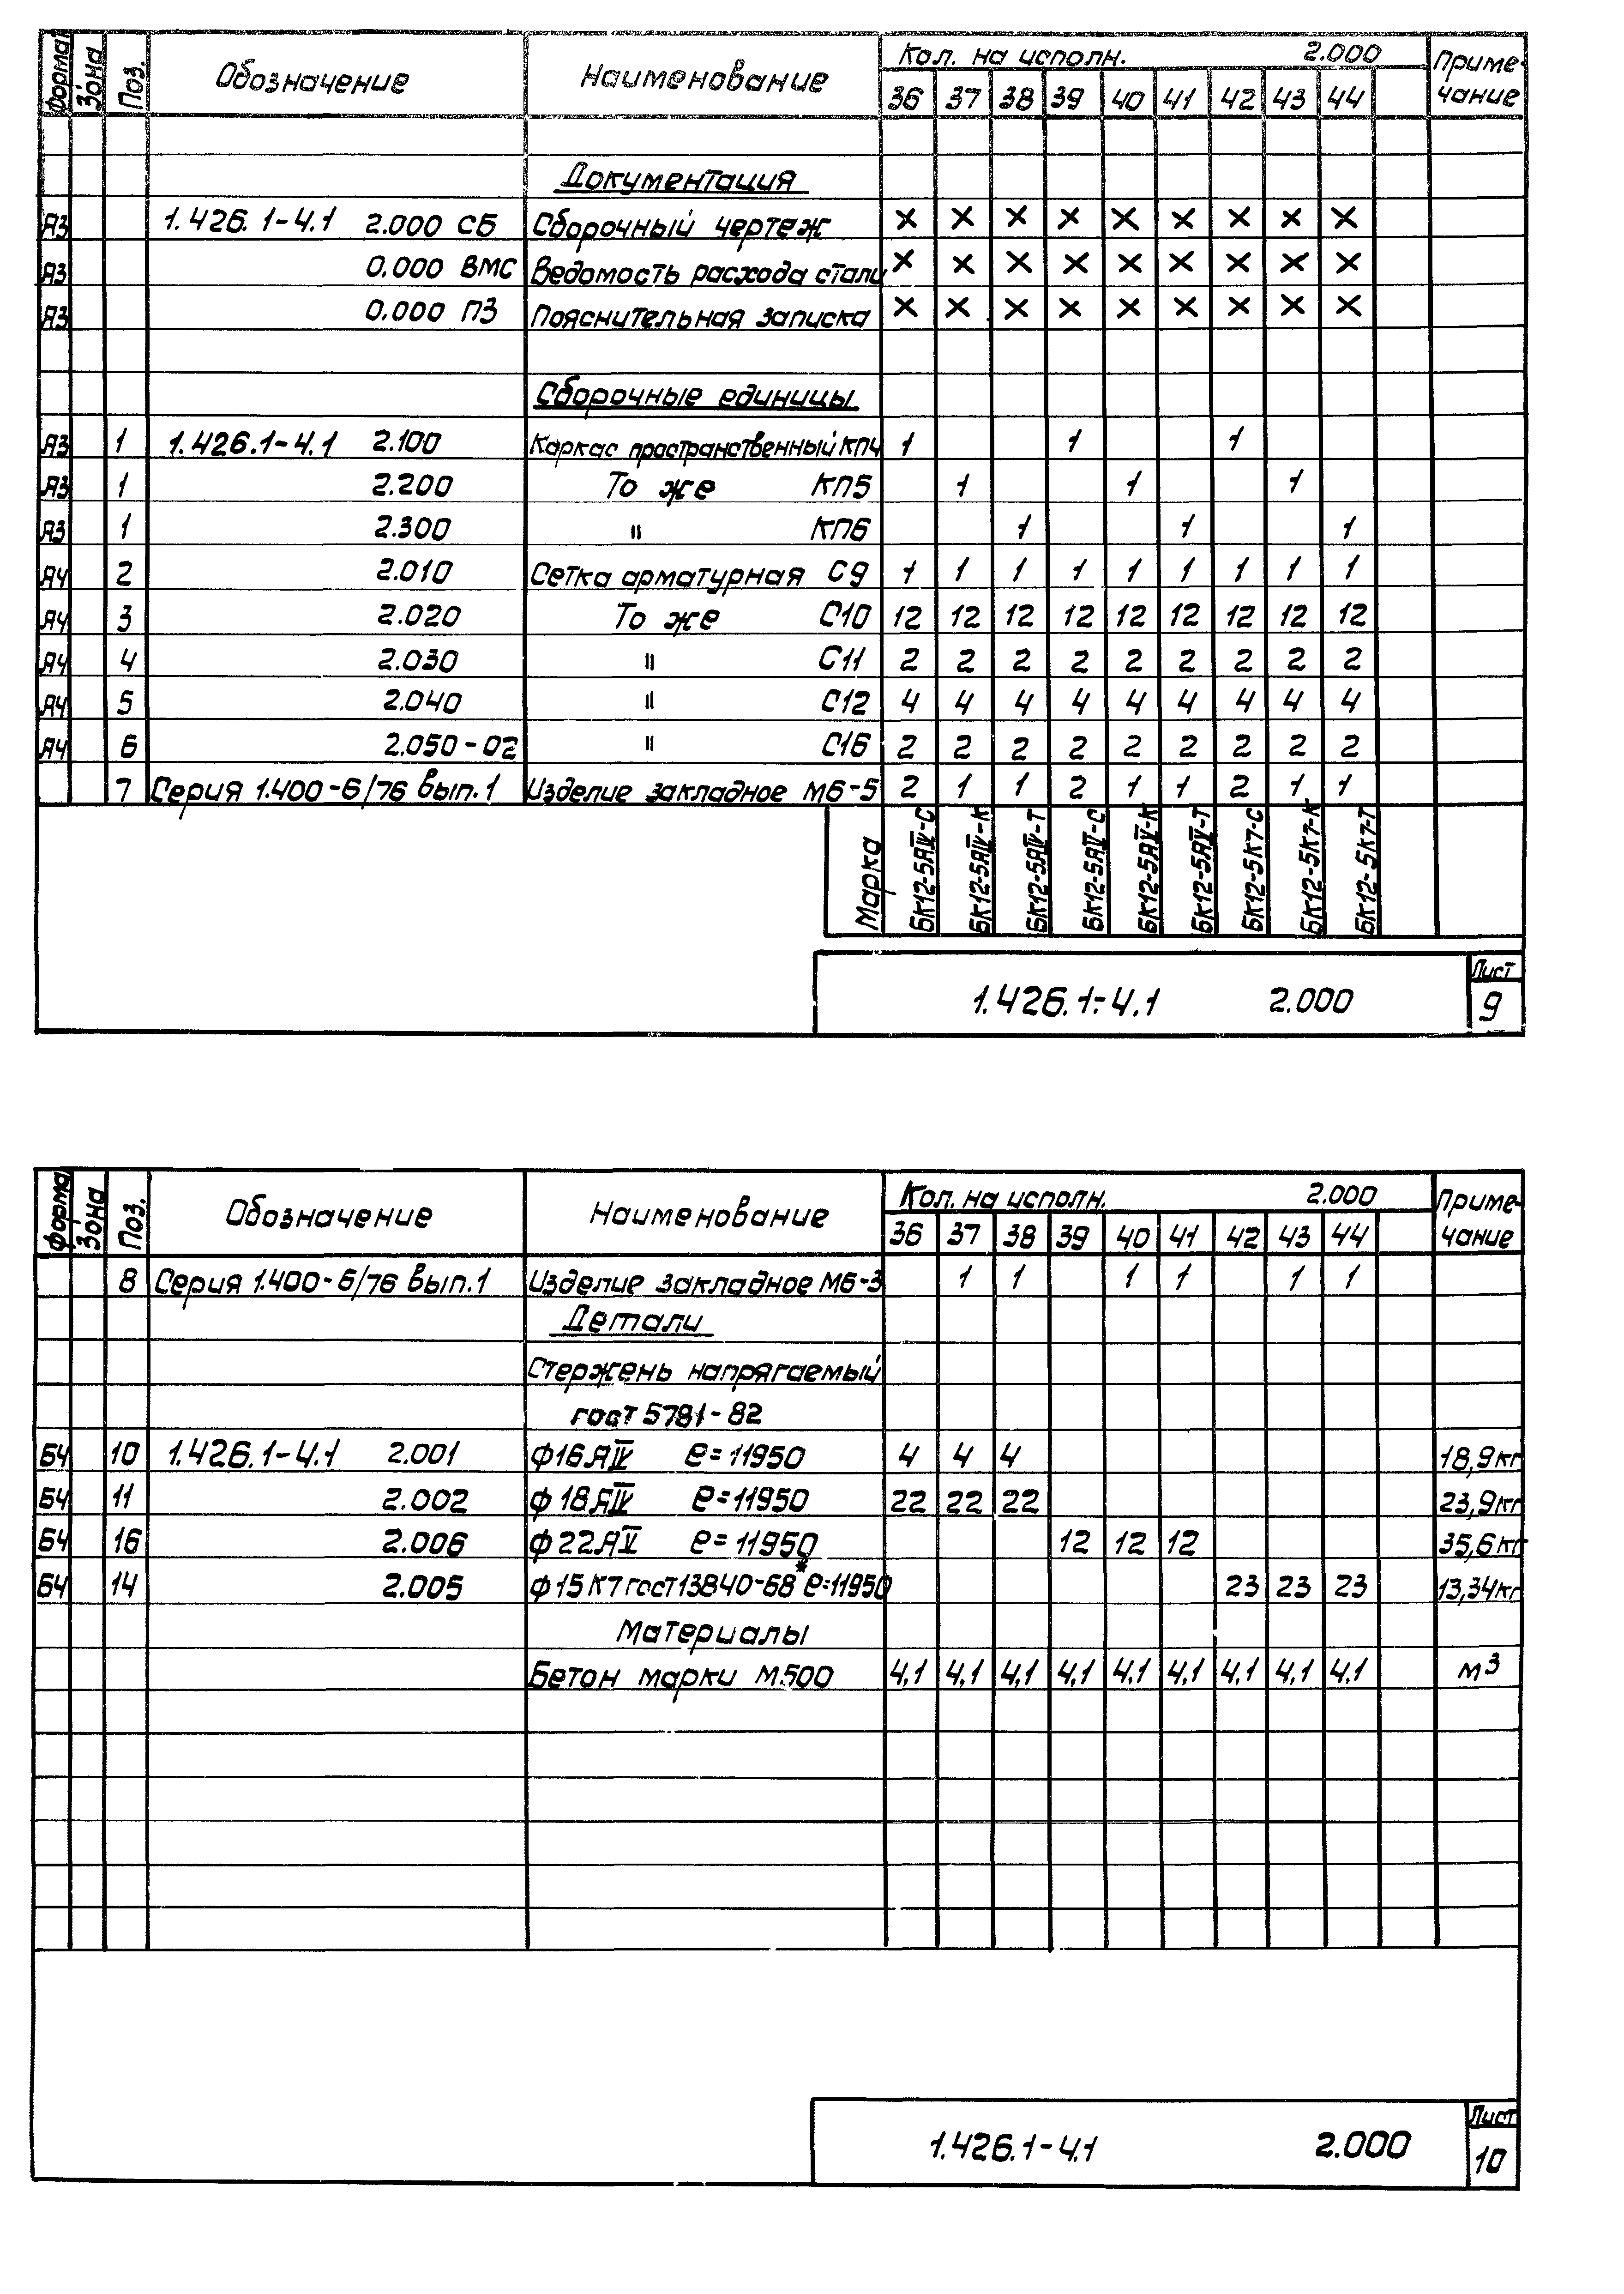 Формат Зона Поз. Обозначение Наименование Кол. на исполн. 2.000 Приме-чание
36 37 38 39 40 41 42 43 44
Документация
А3 1.426.1-4.1 2.000 СБ Сборочный чертеж × × × × × × × × ×
А3 0.000 ВМС Ведомость расхода стали × × × × × × × × ×
А3 0.000 ПЗ Пояснительная записка × × × × × × × × ×
Сборочные единицы
А3 1 1.426.1-4.1 2.100 Каркас пространственный КП4 1 1 1
А3 1 2.200 То же КП5 1 1 1
А3 1 2.300 " КП6 1 1 1
А4 2 2.010 Сетка арматурная С9 1 1 1 1 1 1 1 1 1
А4 3 2.020 То же С10 12 12 12 12 12 12 12 12 12
А4 4 2.030 " С11 2 2 2 2 2 2 2 2 2
А4 5 2.040 " С12 4 4 4 4 4 4 4 4 4
А4 6 2.050-02 " С16 2 2 2 2 2 2 2 2 2
7 Серия 1.400-6/76 вып.1 Изделие закладное М6-5 2 1 1 2 1 1 2 1 1
Марка БК12-5АIV-С БК12-5АIV-К БК12-5АIV-Т БК12-5АV-С БК12-5АV-К БК12-5АV-Т БК12-5К7-С БК12-5К7-К БК12-5К7-Т
1.426.1-4.1 2.000 Лист 9
Формат Зона Поз. Обозначение Наименование Кол. на исполн. 2.000 Приме-чание
36 37 38 39 40 41 42 43 44
8 Серия 1.400-6/76 вып.1 Изделие закладное М6-3 1 1 1 1 1 1
Детали
Стержень напрягаемый
ГОСТ 5781-82
БЧ 10 1.426.1-4.1 2.001 ф16АIV ℓ=11950 4 4 4 18,9кг
БЧ 11 2.002 ф18АIV ℓ=11950 22 22 22 23,9кг
БЧ 16 2.006 ф22АV ℓ=11950 12 12 12 35,6кг
БЧ 14 2.005 ф15К7 ГОСТ 13840-68* ℓ=11950 23 23 23 13,34кг
Материалы
Бетон марки М500 4,1 4,1 4,1 4,1 4,1 4,1 4,1 4,1 4,1 м³
1.426.1-4.1 2.000 Лист 10